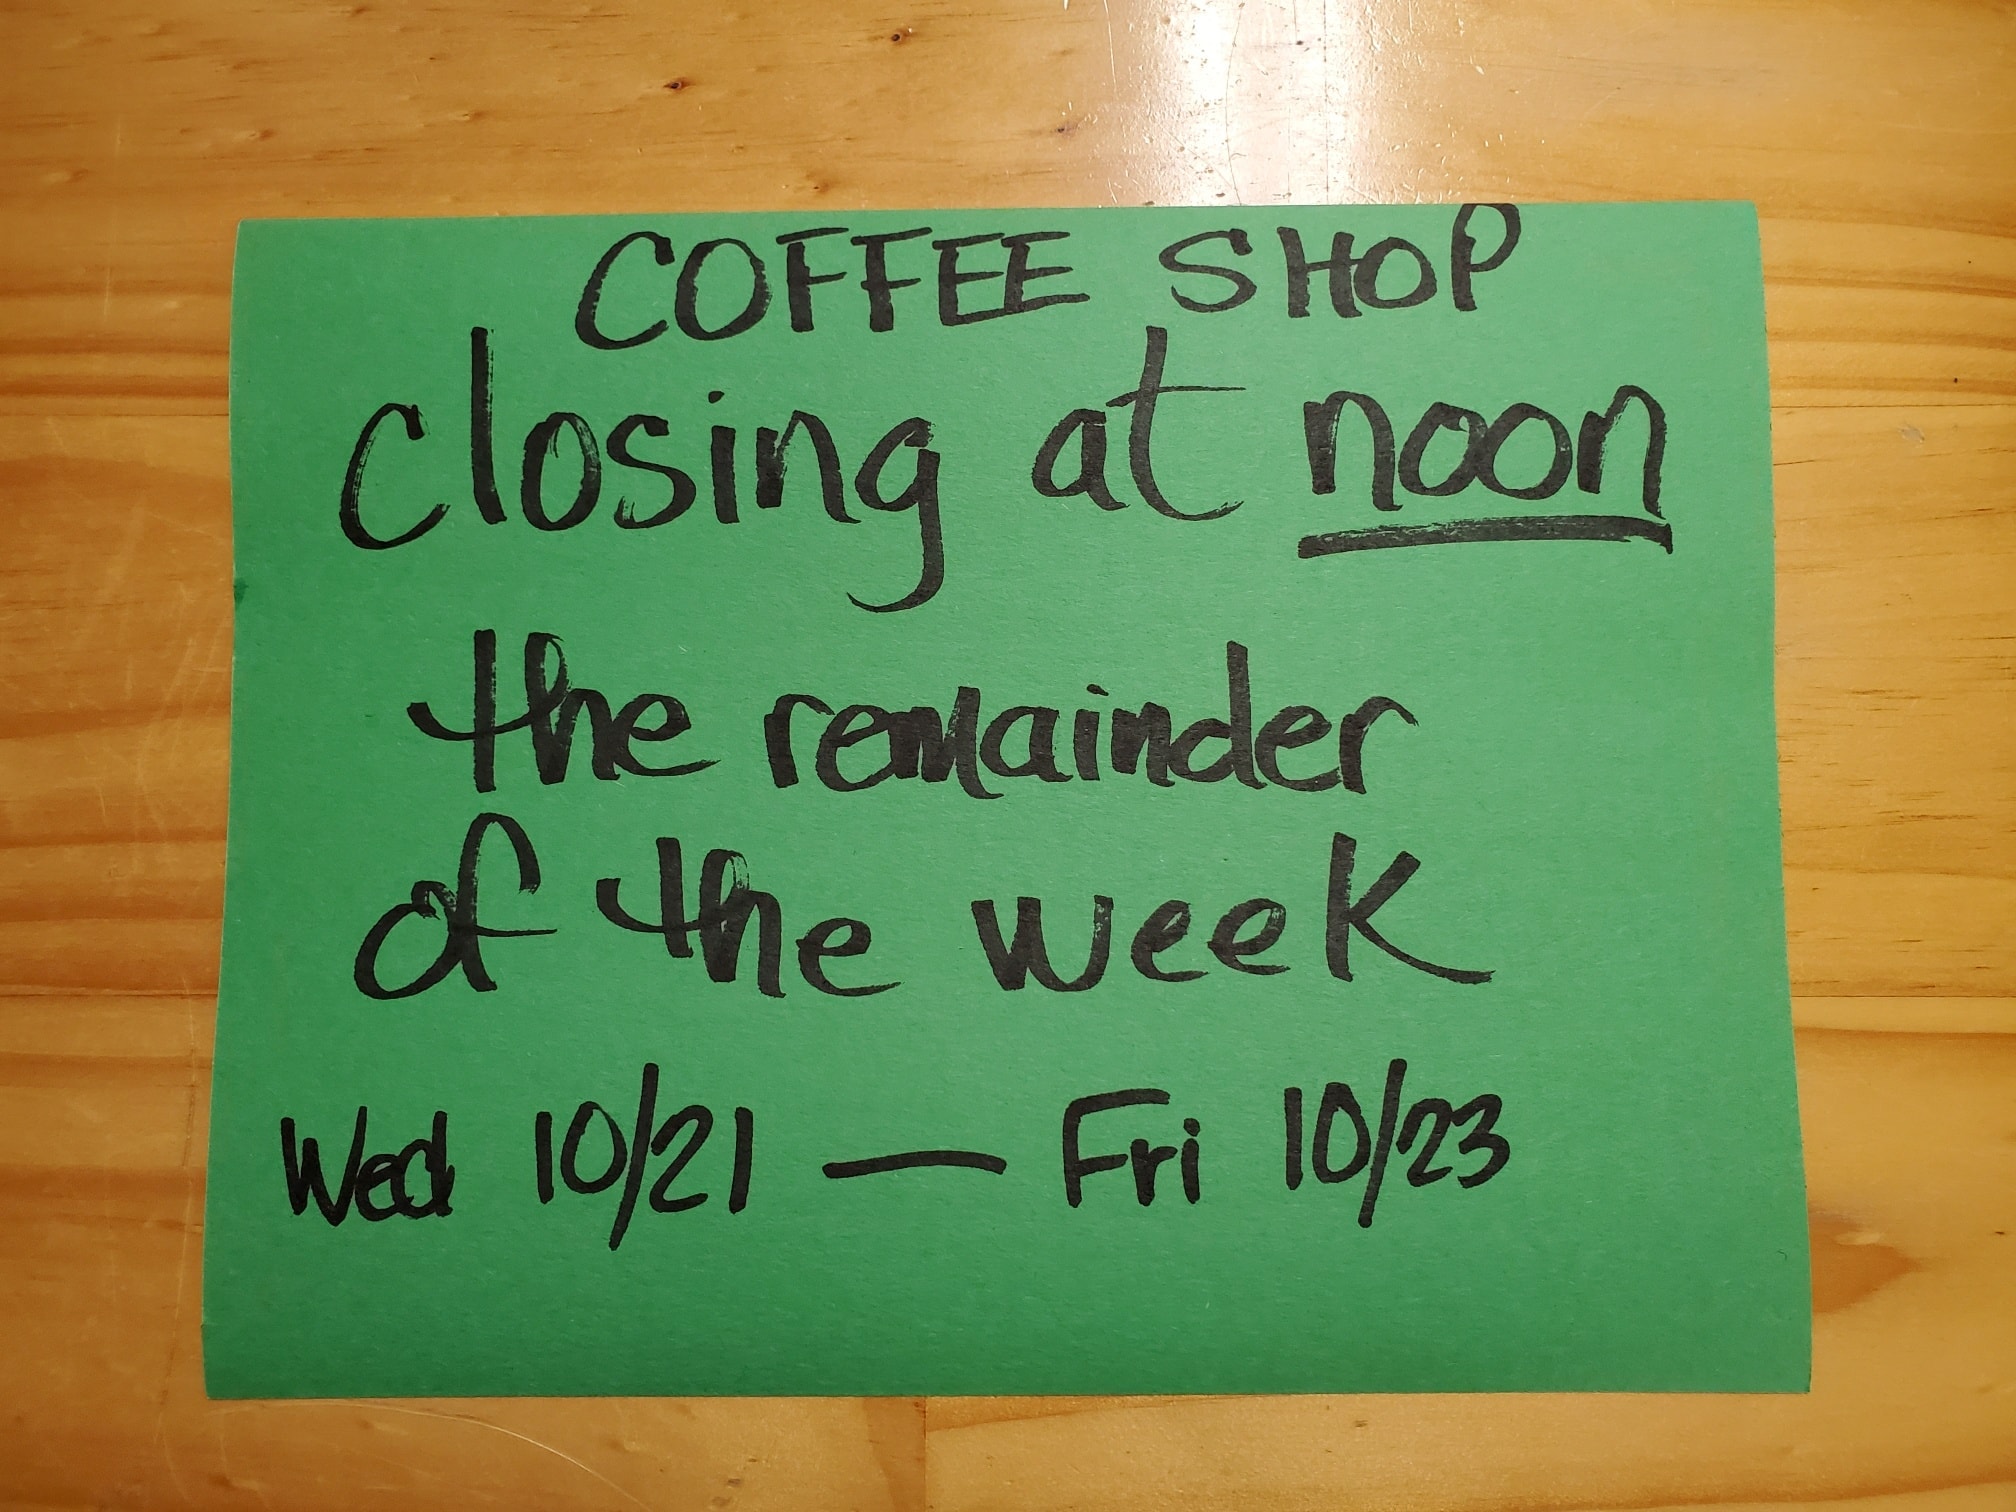 COFFEE SHOP
closing at noon
the remainder
of the week
Wed 10/21 — Fri 10/23